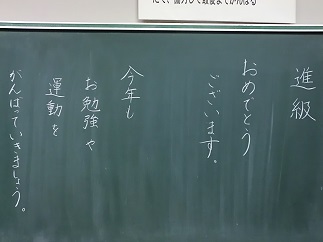 進級
おめでとう
ございます。
今年も
お勉強や
運動を
がんばっていきましょう。